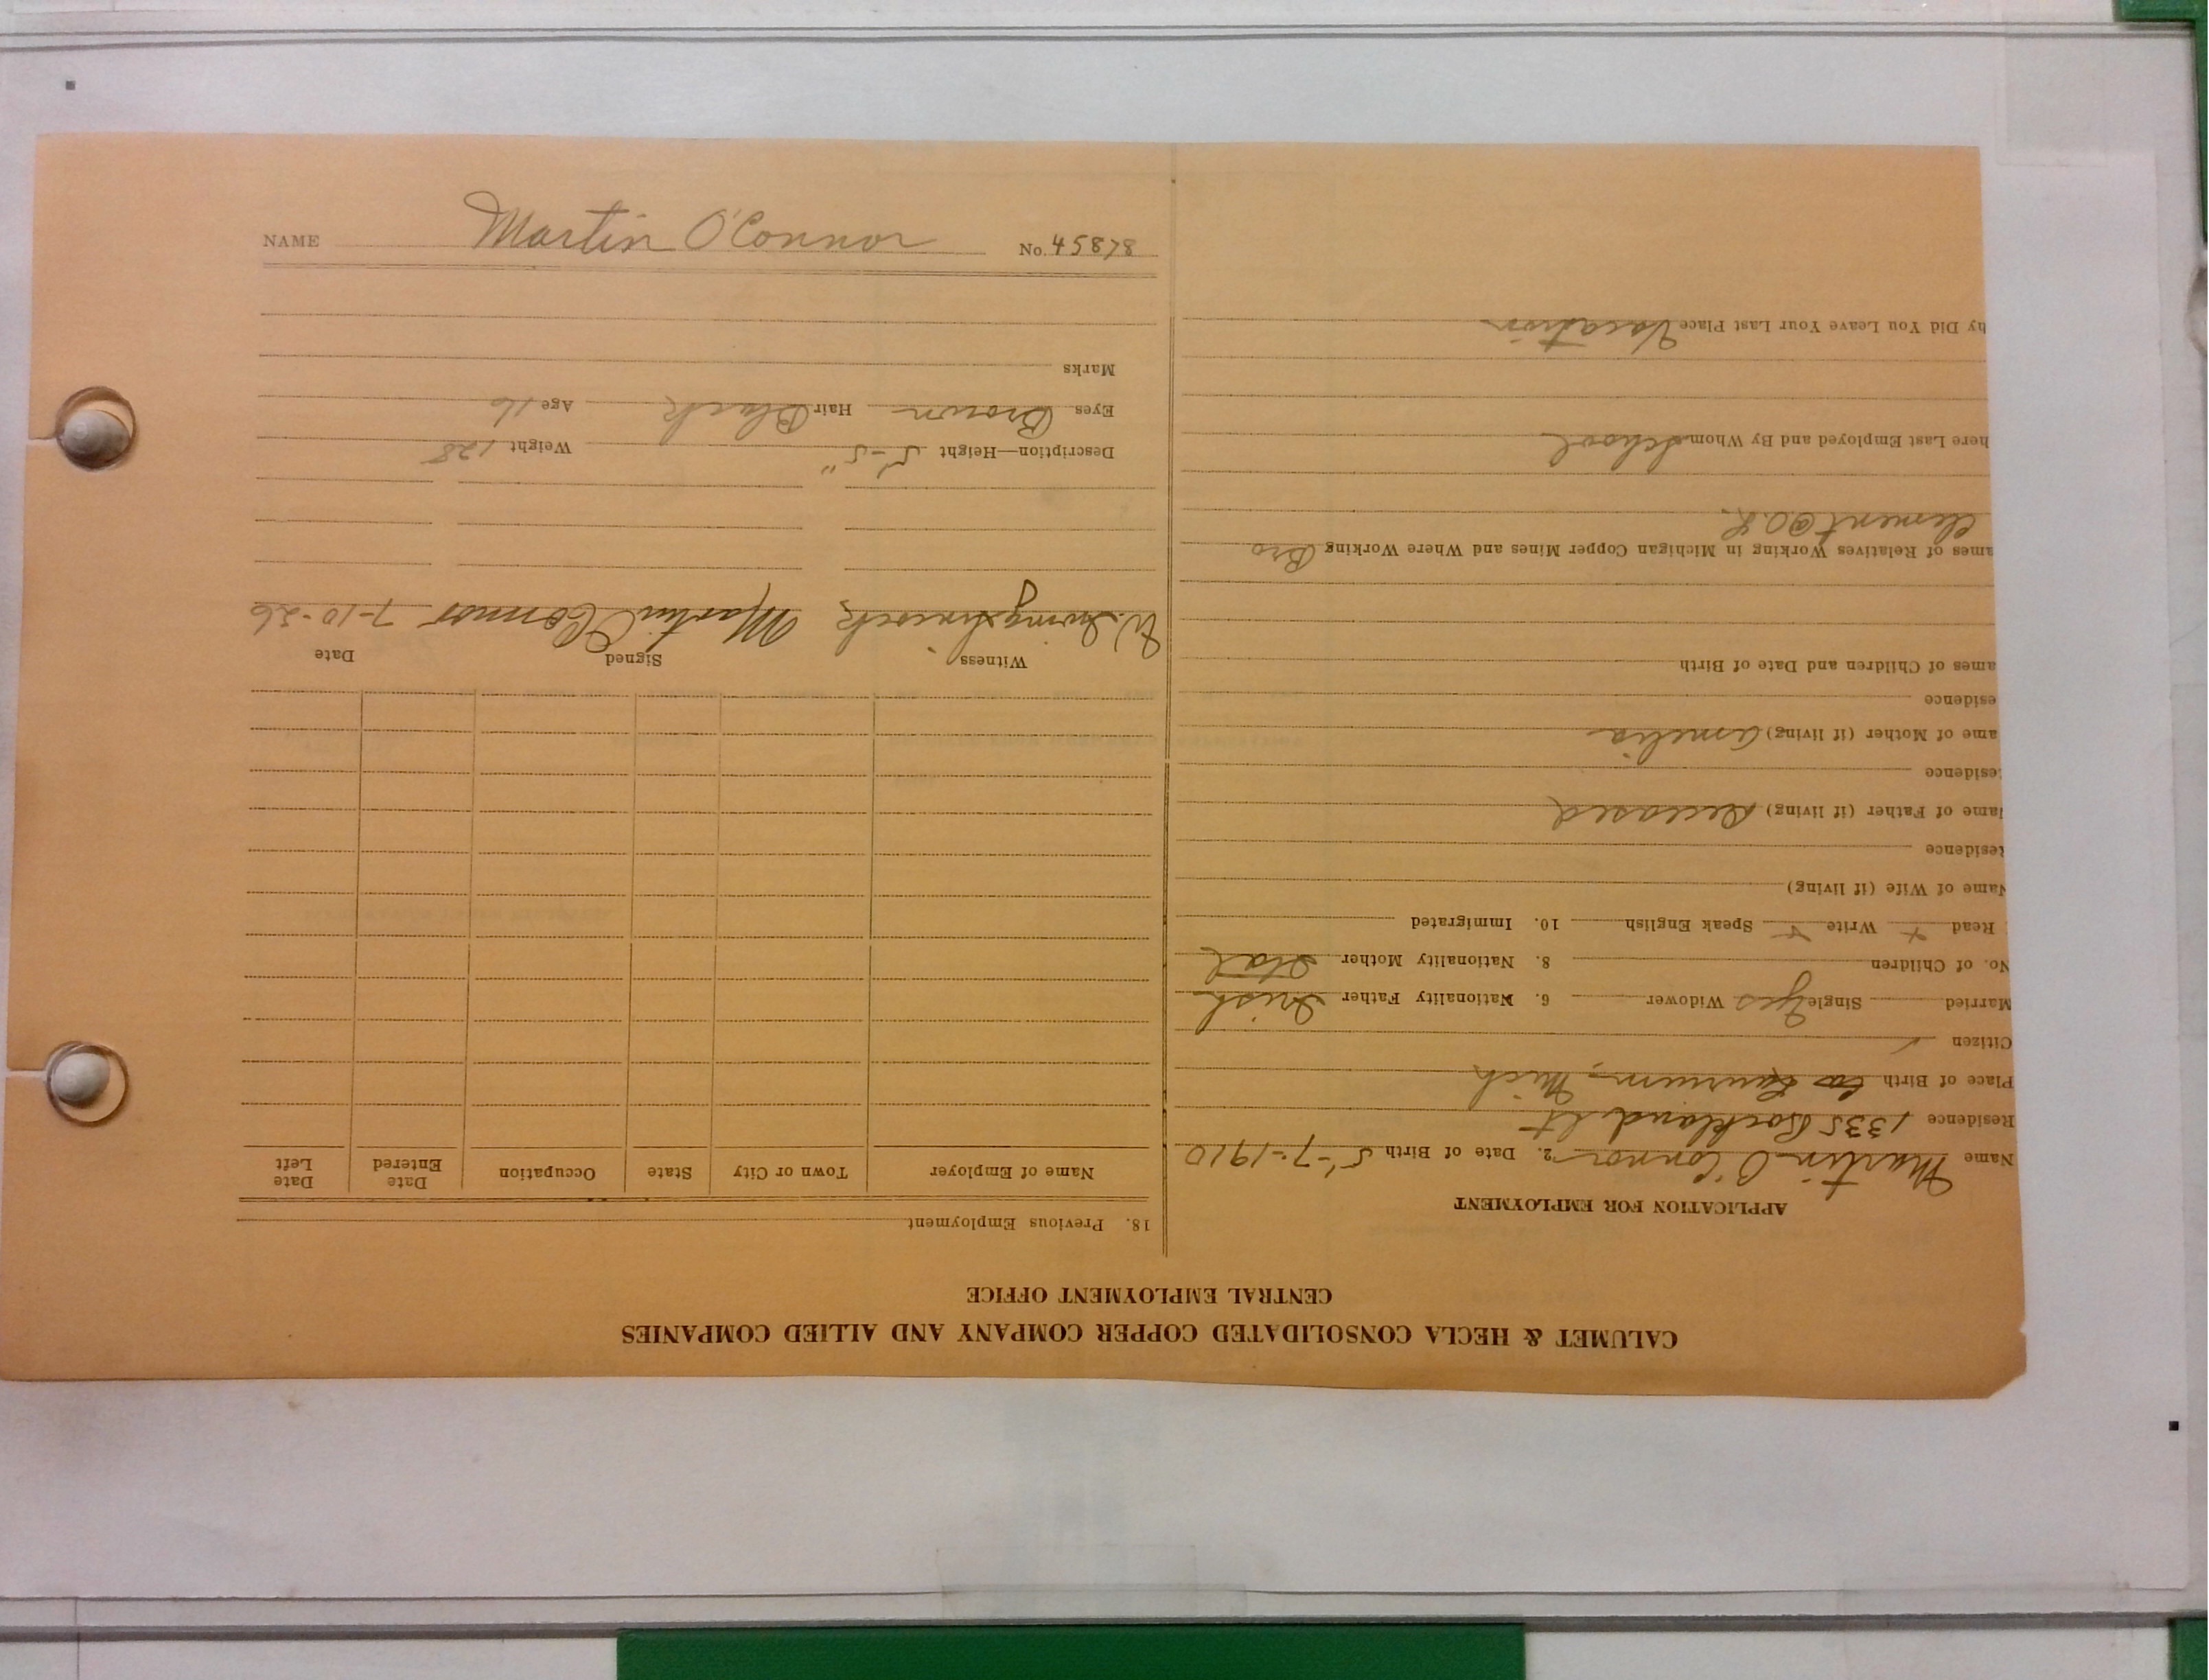 NAME Martin O'Connor No. 45878
CALUMET & HECLA CONSOLIDATED COPPER COMPANY AND ALLIED COMPANIES
CENTRAL EMPLOYMENT OFFICE
APPLICATION FOR EMPLOYMENT
Name Martin O'Connor 2. Date of Birth 5-7-1910
Residence 1335 Rockland St
Place of Birth Laurium, Mich
Citizen
Married Single yes Widower 6. Nationality Father Irish
No. of Children 8. Nationality Mother Ital
Read x Write x Speak English 10. Immigrated
Name of Wife (if living)
Residence
Name of Father (if living) Deceased
Residence
ame of Mother (if living) Amelia
esidence
ames of Children and Date of Birth
ames of Relatives Working in Michigan Copper Mines and Where Working Bro
Clement @
here Last Employed and By Whom School
hy Did You Leave Your Last Place Vacation
18. Previous Employment
Name of Employer Town or City State Occupation Date Entered Date Left
Witness Signed Date
W. Martin O'Connor 7-10-26
Description—Height 5'-5" Weight 128
Eyes Brown Hair Black Age 16
Marks